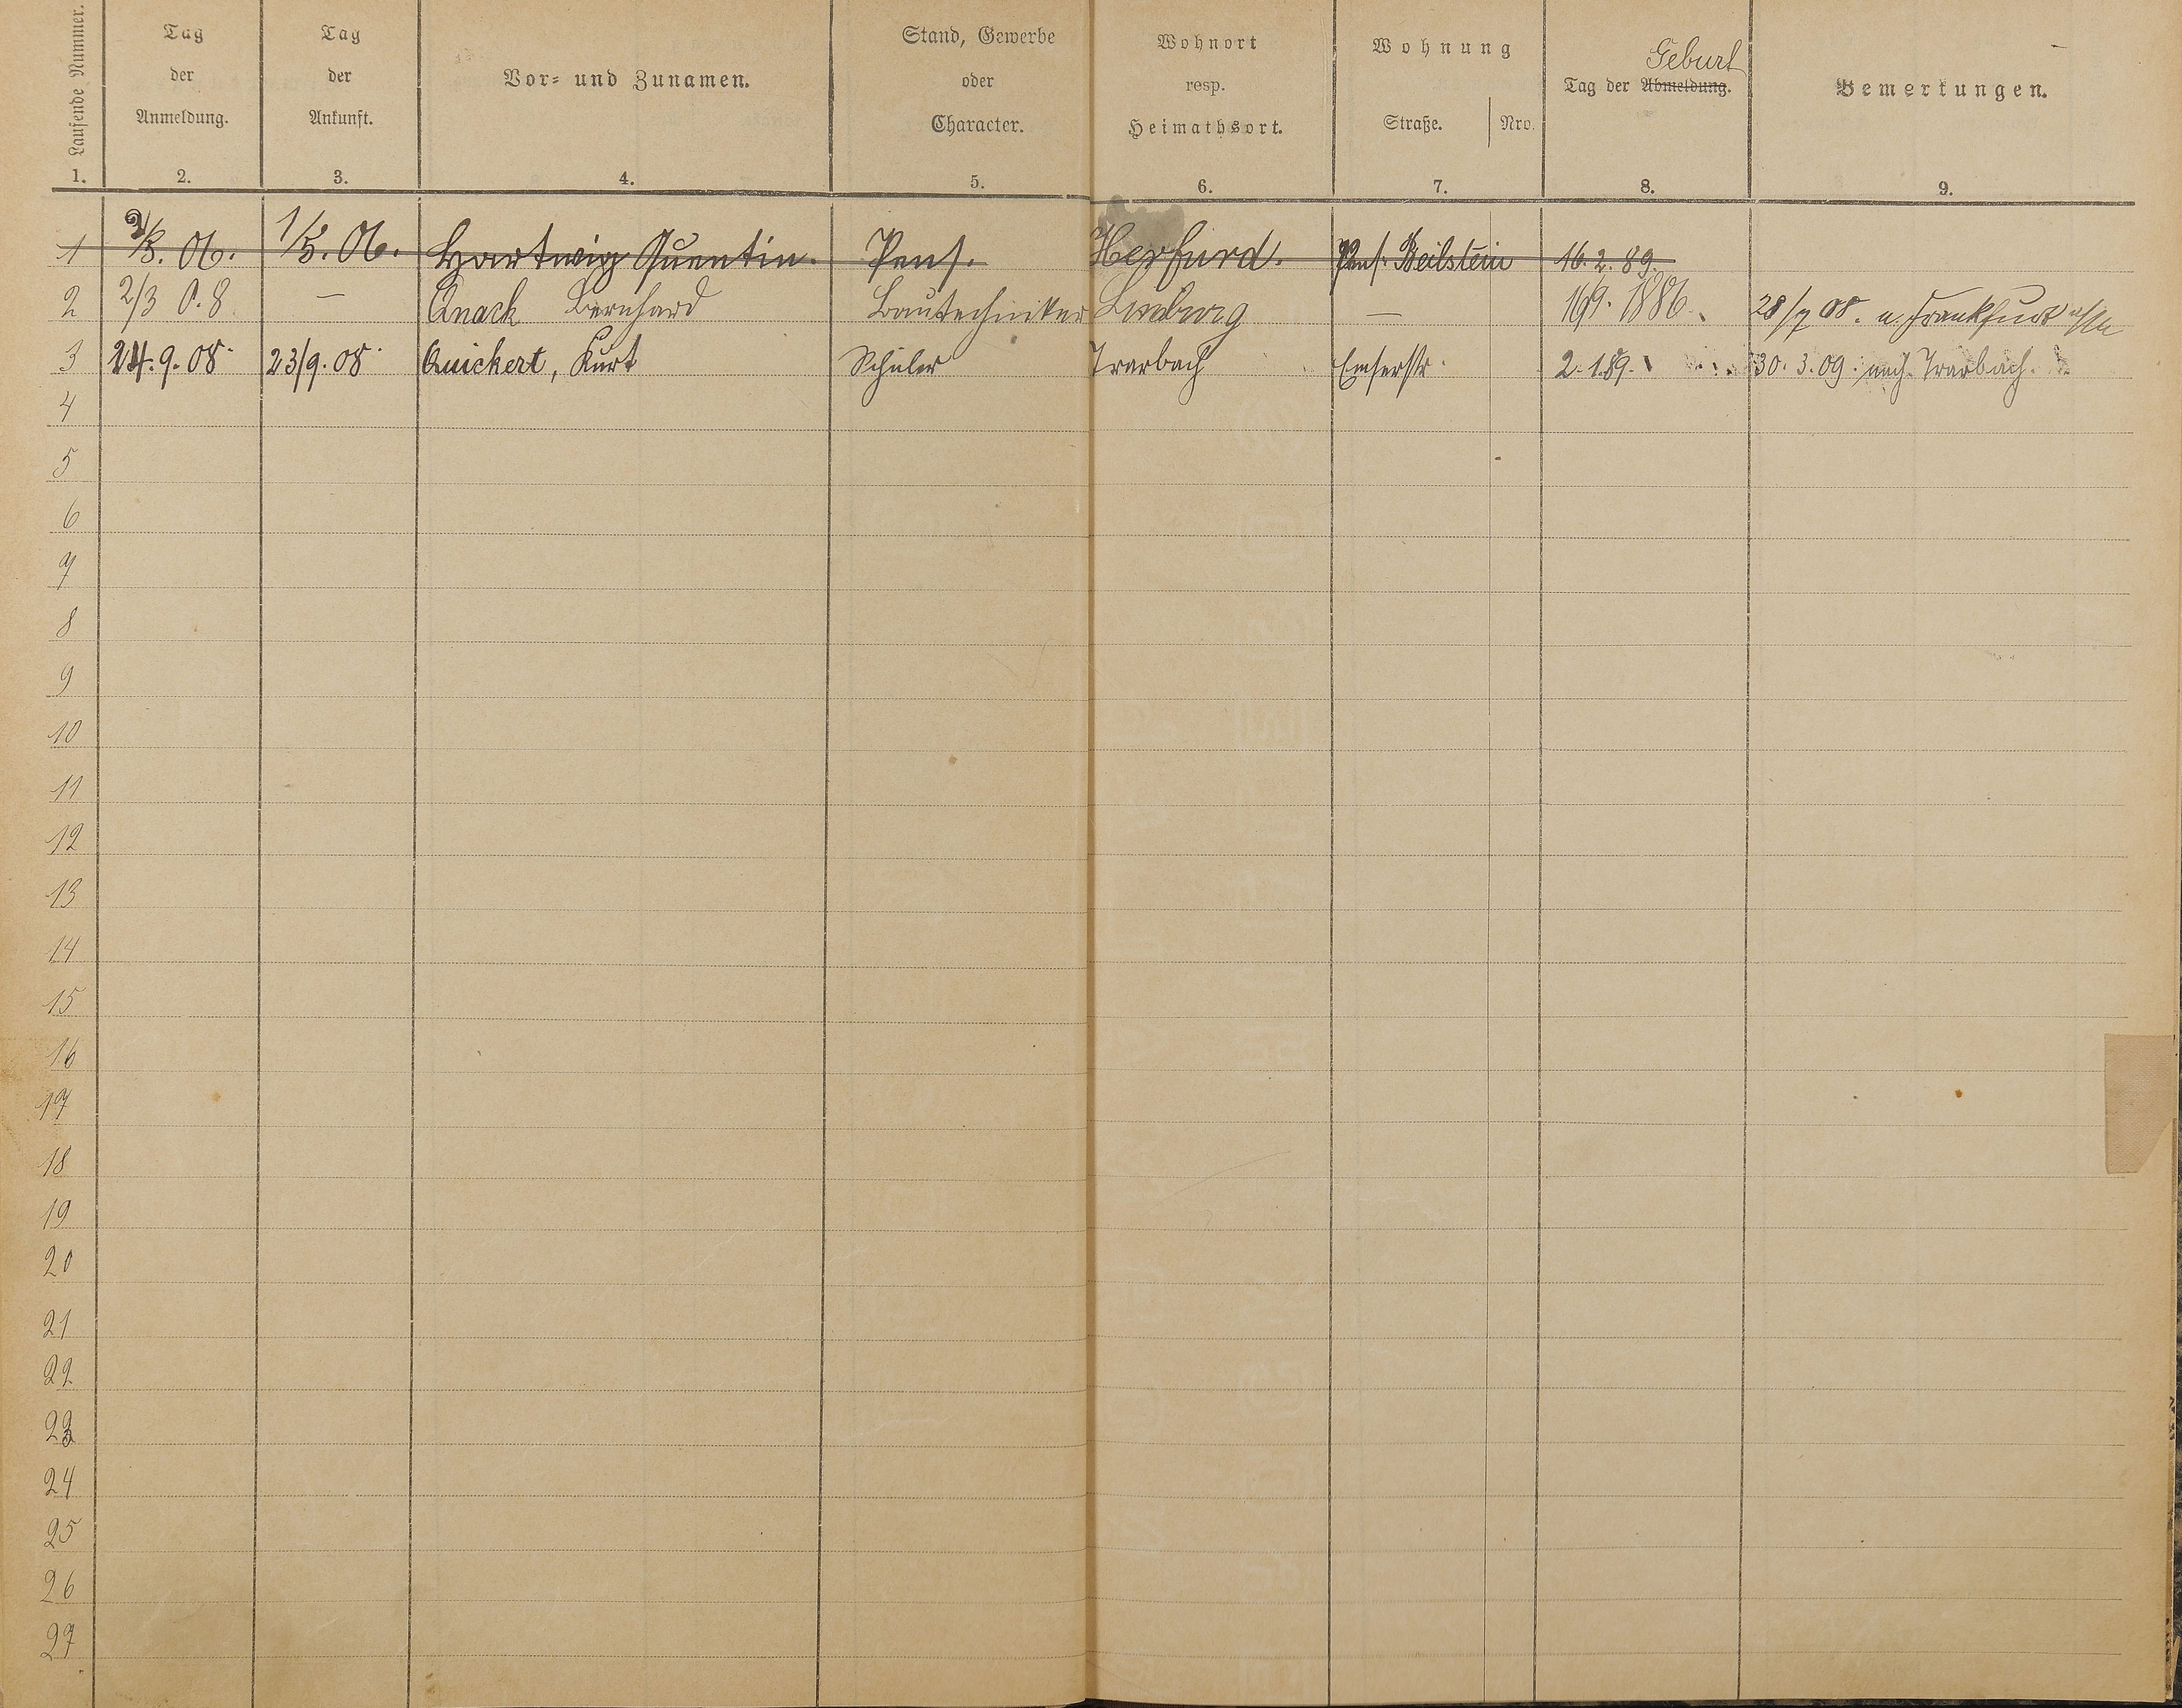 Laufende Nummer. Tag der Anmeldung. Tag der Ankunft. Vor- und Zunamen. Stand, Gewerbe oder Character. Wohnort resp. Heimathsort. Wohnung Straße. Nro. Tag der Abmeldung. Geburt Bemerkungen.
1. 2. 3. 4. 5. 6. 7. 8. 9.
1 2/5. 06. 1/5. 06. Hartwig Quentin. Pens. Herfurd. Pens. Beilstein 16. 2. 89.
2 2/3 0.8 — Quack Bernhard Bautechniker Limburg — 16/9. 1886. 28/7 08. n. Frankfurt a/M
3 24. 9. 08. 23/9. 08. Quickert, Kurt Schüler Trarbach Emserstr. 2. 1. 89. 30. 3. 09. nach Trarbach.
4
5
6
7
8
9
10
11
12
13
14
15
16
17
18
19
20
21
22
23
24
25
26
27